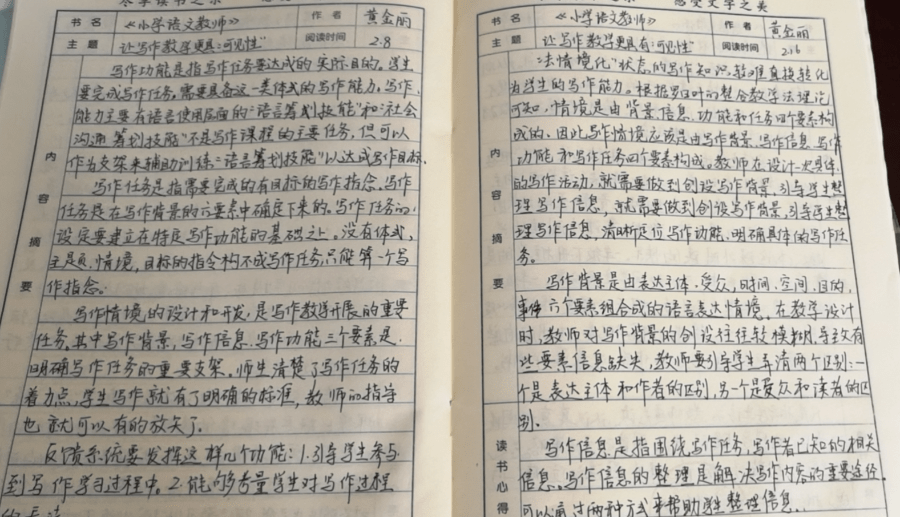 书名 《小学语文教师》 作者 黄金丽
主题 让写作教学更具"可见性" 阅读时间 2.8
内容摘要
写作功能是指写作任务要达成的实际目的。学生
要完成写作任务,需要具备这一类体式的写作能力。写作
能力主要在语言使用层面的"语言筹划技能"和"社会
沟通筹划技能"不是写作课程的主要任务,但可以
作为支架来辅助训练"语言筹划技能"以达成写作目标.
写作任务是指需要完成的有目标的写作指念。写作
任务是在写作背景的六要素中确定下来的。写作任务的
设定要建立在特定写作功能的基础之上。没有体式,
主题,情境,目标的指令构不成写作任务只能算一个写
作指念。
写作情境的设计和开发,是写作教学开展的重要
任务,其中写作背景,写作信息.写作功能三个要素是
明确写作任务的重要支架。师生清楚了写作任务的
着力点,学生写作就有了明确的标准,教师的指导
也就可以有的放矢了。
反馈系统要发挥这样几个功能:1.引导学生参与
到写作学习过程中。2.能够考量学生对写作过程
书名 《小学语文教师》 作者 黄金丽
主题 让写作教学更具"可见性" 阅读时间 2.16
内容摘要
"法情境化"状态的写作知识,较难直接转化
为学生的写作能力。根据罗日叶的整合教学法理论
可知,情境是由背景信息.功能和任务四个要素构
成的,因此写作情境应该是由写作背景.写作信息.写作
功能和写作任务四个要素构成。教师在设计一次具体
的写作活动,就需要做到创设写作背景,引导学生整
理写作信息,就需要做到创设写作背景,引导学生整
理写作信息,清晰定位写作功能,明确具体的写作任
务。
写作背景是由表达主体.受众,时间.空间.目的,
事件六个要素组合成的语言表达情境。在教学设计
时,教师对写作背景的创设往往较模糊,导致有
些要素信息缺失,教师要引导学生弄清两个区别:一
个是表达主体和作者的区别,另一个是受众和读者的区
别。
读书心得
写作信息是指围绕写作任务,写作者已知的相关
信息。写作信息的整理是解决写作内容的重要途径.
可以通过两种方式来帮助学生整理信息.